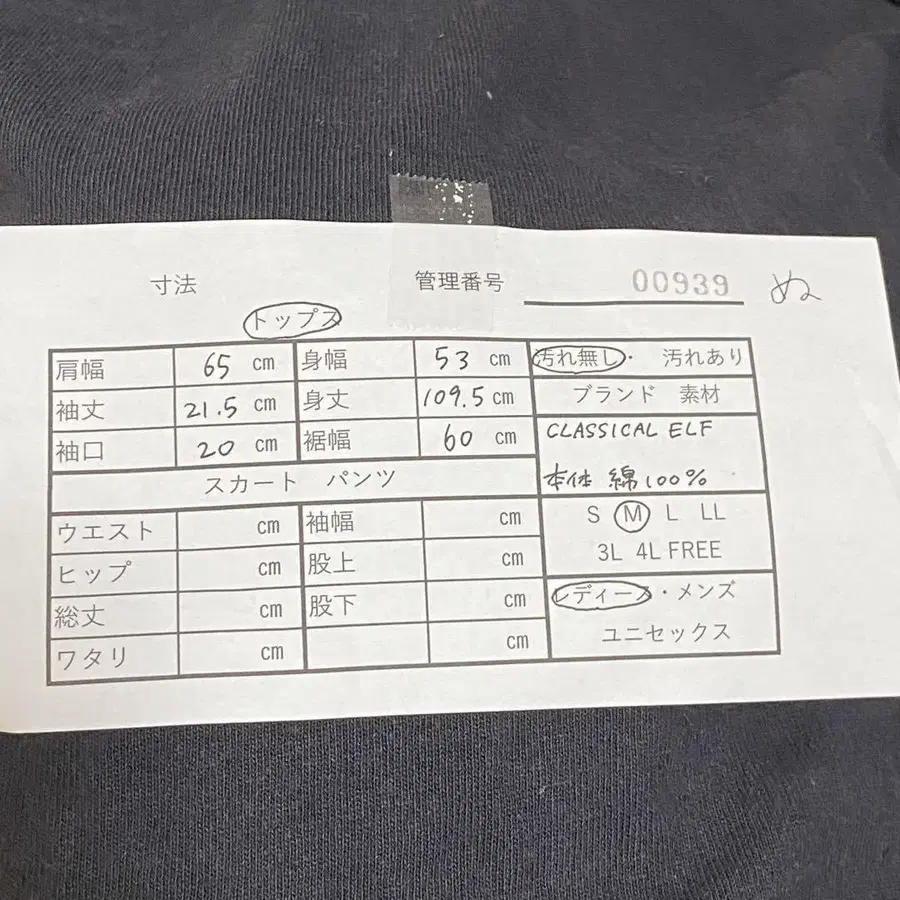 寸法 管理番号 00939 ぬ
トップス
肩幅 65 cm 身幅 53 cm 汚れ無し・ 汚れあり
袖丈 21.5 cm 身丈 109.5 cm ブランド 素材
袖口 20 cm 裾幅 60 cm CLASSICAL ELF
スカート パンツ 本体 綿100%
ウエスト cm 袖幅 cm S M L LL
ヒップ cm 股上 cm 3L 4L FREE
総丈 cm 股下 cm レディース・メンズ
ワタリ cm cm ユニセックス